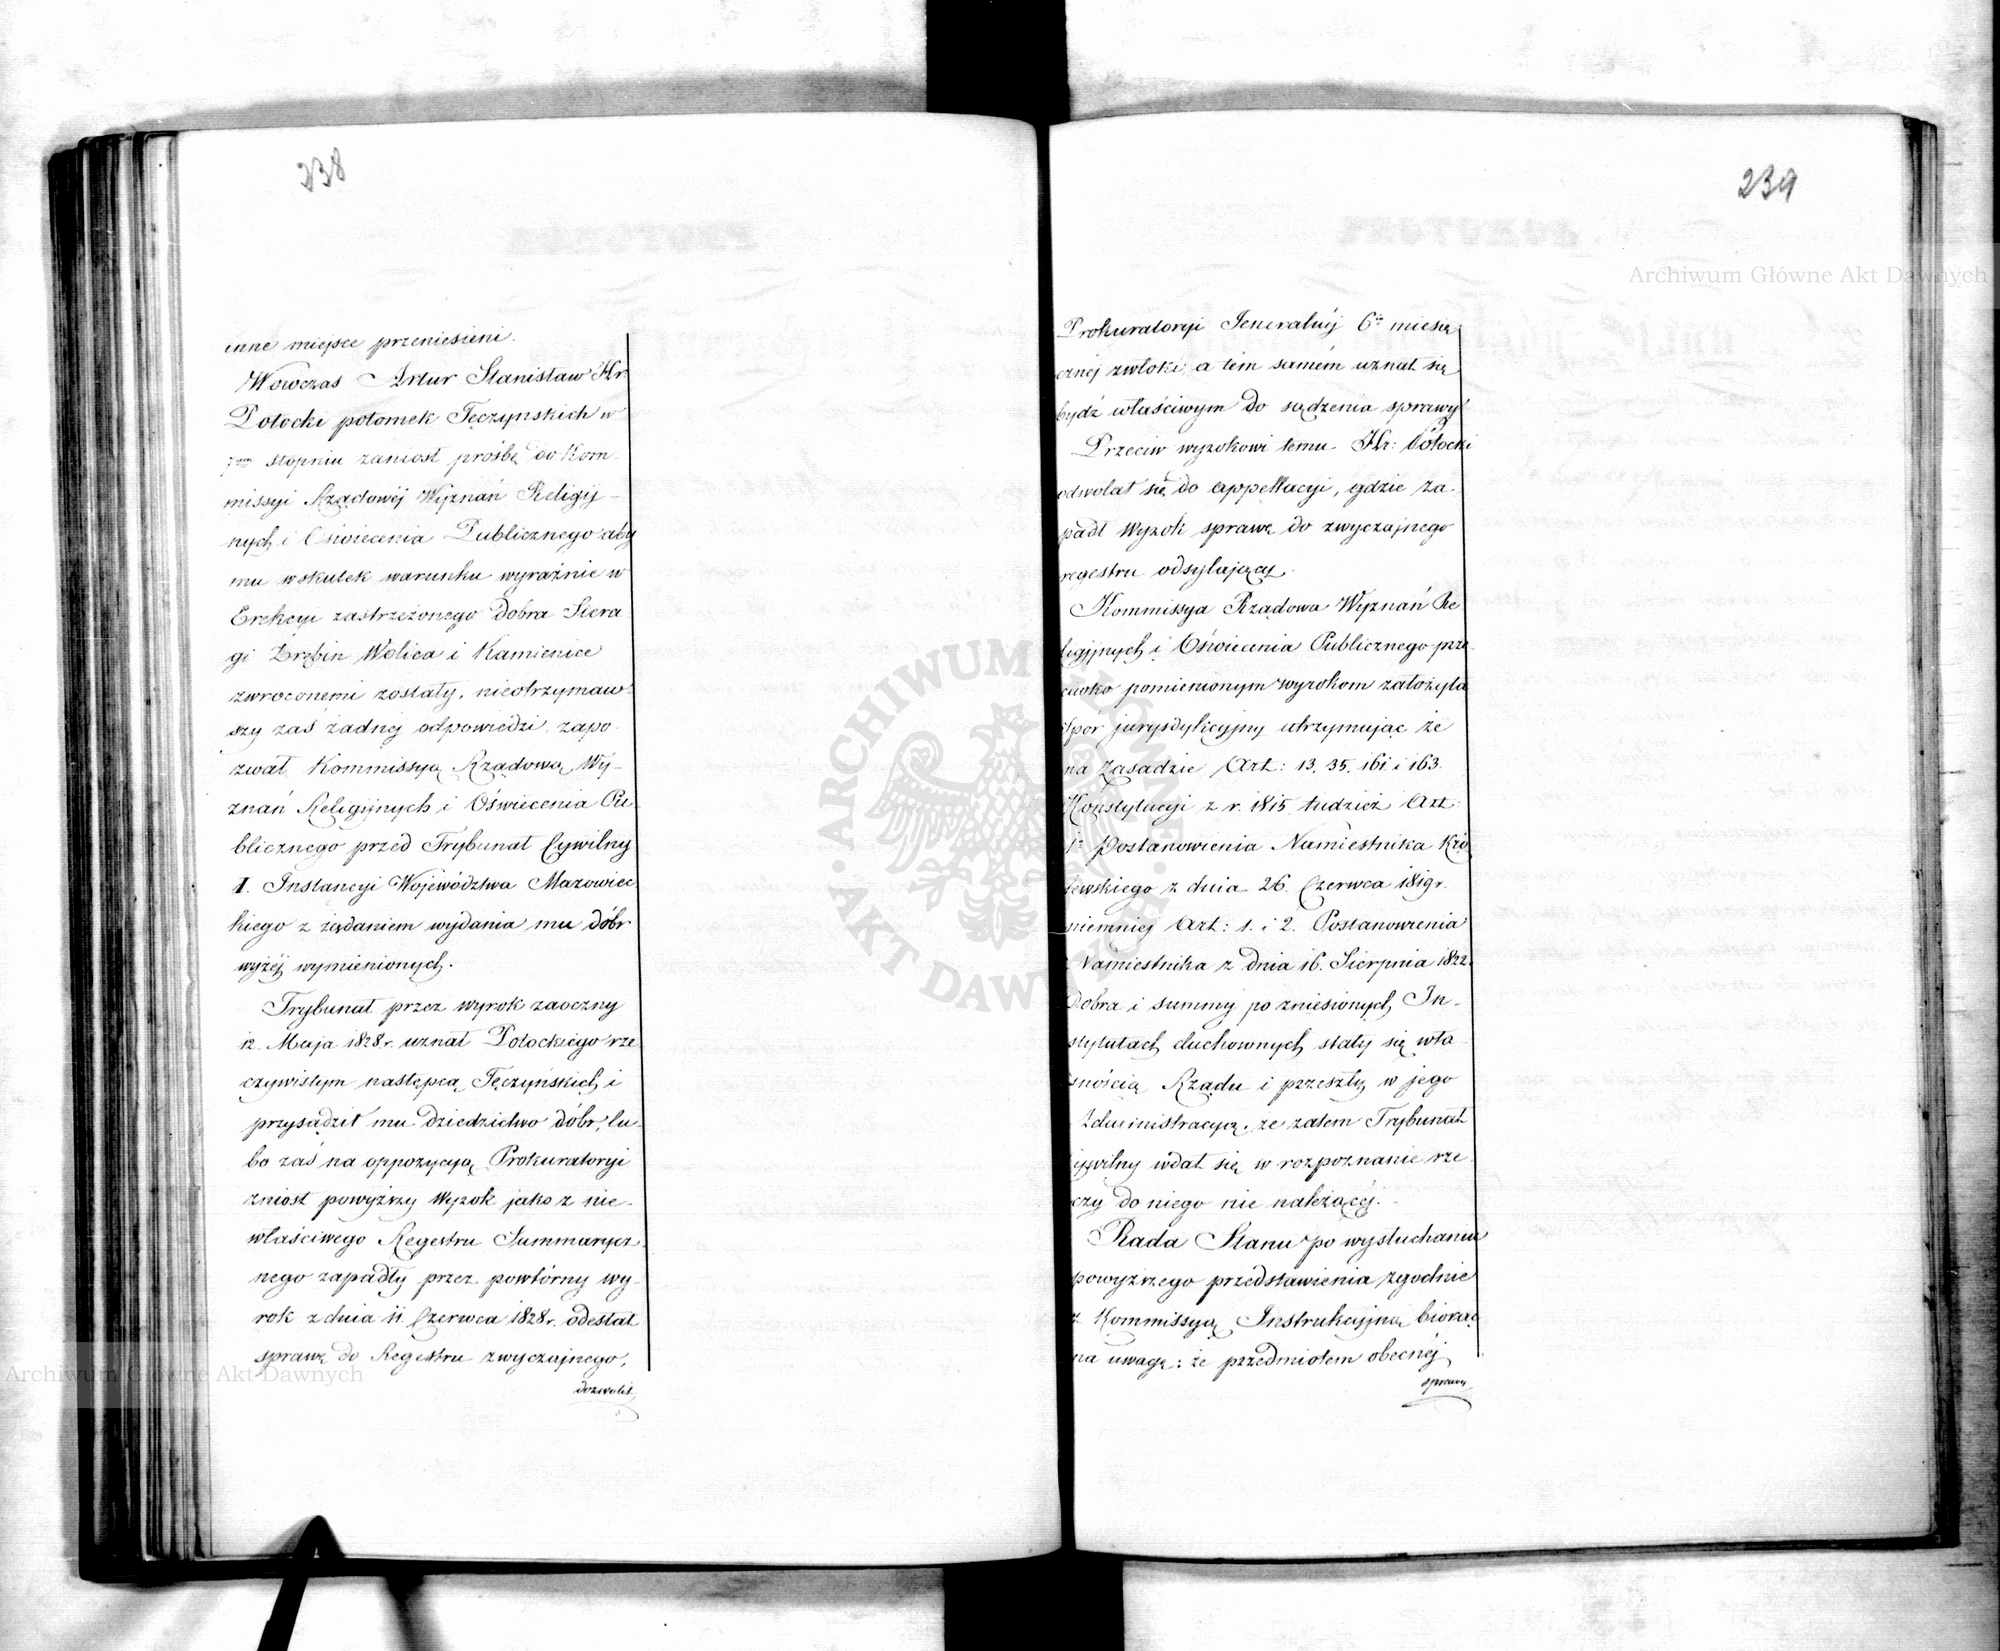 238
inne miejsce przeniesieni.
Wówczas Artur Stanisław Hr
Potocki potomek Tęczynskich w
7ym stopniu zaniosł prośbę do Kom-
missyi Rządowéj Wyznań Religij-
nych i Oświecenia Publicznego aby
mu wskutek warunku wyraźnie w
Erekcyi zastrzeżonego Dobra Siera
gi Zrębin Wolica i Kamienice
zwroconemi zostały, nieotrzymaw-
szy zaś żadnej odpowiedzi, zapo-
zwał Kommissyą Rządową Wy-
znań Religijnych i Oświecenia Pu
blicznego przed Trybunał Cywilny
I. Instancyi Województwa Mazowiec
kiego z żądaniem wydania mu dóbr
wyżéj wymienionych.
Trybunał przez wyrok zaoczny
12. Maja 1828 r. uznał Potockiego rze
czywistym następcą Tęczyńskich i
przysądził mu dziedzictwo dóbr, lu-
bo zaś na oppozycyą Prokuratoryi
zniosł powyższy Wyrok jako z nie-
właściwego Regestru Summarycz
nego zapadły przez powtórny wy-
rok z dnia 11 Czerwca 1828 r. odesłał
sprawę do Regestru zwyczajnego,
dozwolił
239
Prokuratoryi Jeneralnéj 6io miesię
cznéj zwłoki, a tém samém uznał się
bydź właściwym do sądzenia sprawy
Przeciw wyrokowi temu Hr: Potocki
odwołał się do appellacyi, gdzie za-
padł Wyrok sprawę do zwyczajnego
regestru odsyłający.
Kommissya Rządowa Wyznań Re
ligijnych i Oświecenia Publicznego prze-
ciwko pomienionym wyrokom założyła
spór jurysdykcyjny utrzymując że
na Zasadzie Art: 13. 35. 161 i 163.
Konstytucyi z r. 1815 tudzież Art:
1o Postanowienia Namiestnika Kró
lewskiego z dnia 26. Czerwca 1819 r.
niemniej Art: 1. i 2. Postanowienia
Namiestnika z dnia 16. Sierpnia 1822.
Dobra i summy po zniesionych In-
stytutach duchownych stały się wła
snością Rządu i przeszły w jego
Administracyą, że zatem Trybunał
Cywilny wdał się w rozpoznanie rze-
czy do niego nie należącéj.
Rada Stanu po wysłuchaniu
powyższego przedstawienia zgodnie
z Kommissyą Instrukcyjną biorąc
na uwagę: że przedmiotem obecnéj
sprawy
Archiwum Główne Akt Dawnych
Archiwum Główne Akt Dawnych